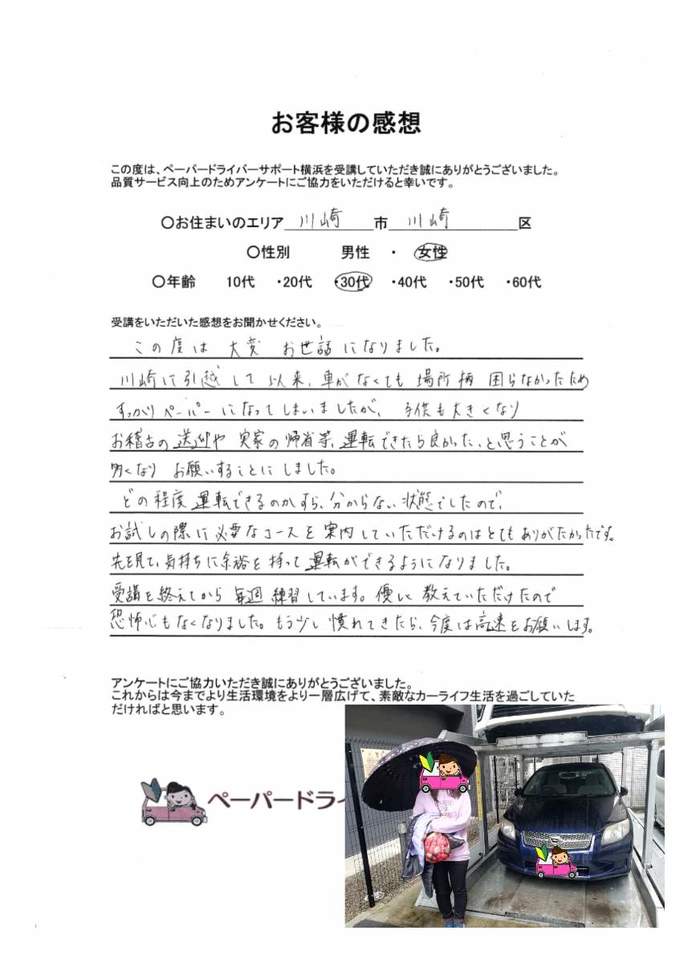 お客様の感想
この度は、ペーパードライバーサポート横浜を受講していただき誠にありがとうございました。
品質サービス向上のためアンケートにご協力をいただけると幸いです。
〇お住まいのエリア 川崎 市 川崎 区
〇性別 男性 ・ 女性
〇年齢 10代 ・20代 ・30代 ・40代 ・50代 ・60代
受講をいただいた感想をお聞かせください。
この度は 大変 お世話になりました。
川崎に引越して以来、車がなくても場所柄 困らなかったため
すっかりペーパーになってしまいましたが、子供も大きくなり
お稽古の送迎や 実家の帰省等、運転できたら良かった、と思うことが
多くなり お願いすることにしました。
どの程度 運転できるのかすら、分からない状態でしたので、
お試しの際に必要なコースを案内していただけるのはとてもありがたかったです。
先を見て、気持ちに余裕を持って運転ができるようになりました。
受講を終えてから毎週練習しています。優しく教えていただけたので
恐怖心もなくなりました。もう少し慣れてきたら、今度は高速をお願いします。
アンケートにご協力いただき誠にありがとうございました。
これからは今までより生活環境をより一層広げて、素敵なカーライフ生活を過ごしていた
だければと思います。
ペーパードライ